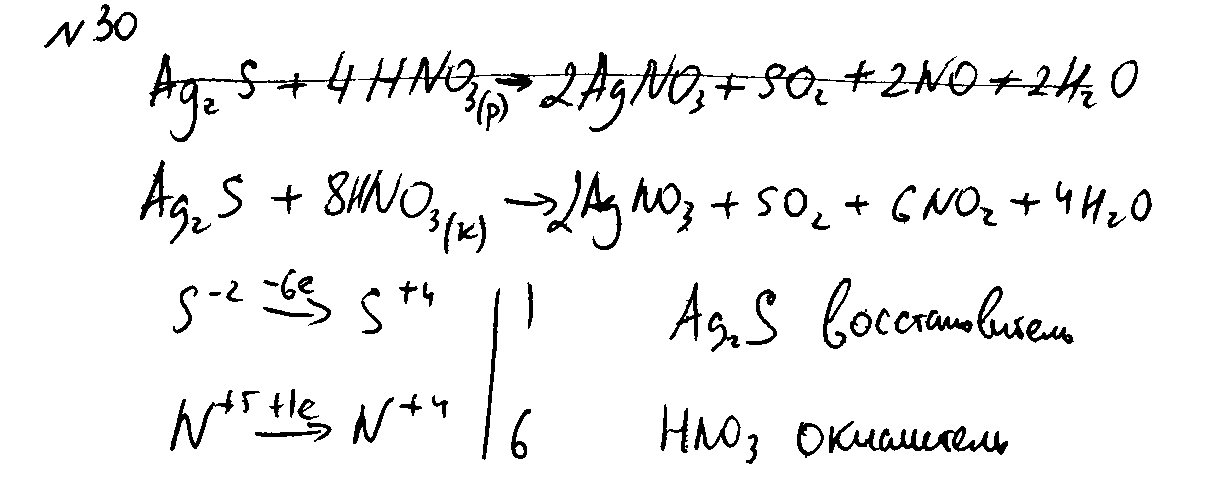 N 30
Ag₂S + 4HNO₃(р) → 2AgNO₃ + SO₂ + 2NO + 2H₂O
Ag₂S + 8HNO₃(к) → 2AgNO₃ + SO₂ + 6NO₂ + 4H₂O
S⁻² −6e → S⁺⁴ | 1 Ag₂S восстановитель
N⁺⁵ +1e → N⁺⁴ | 6 HNO₃ окислитель